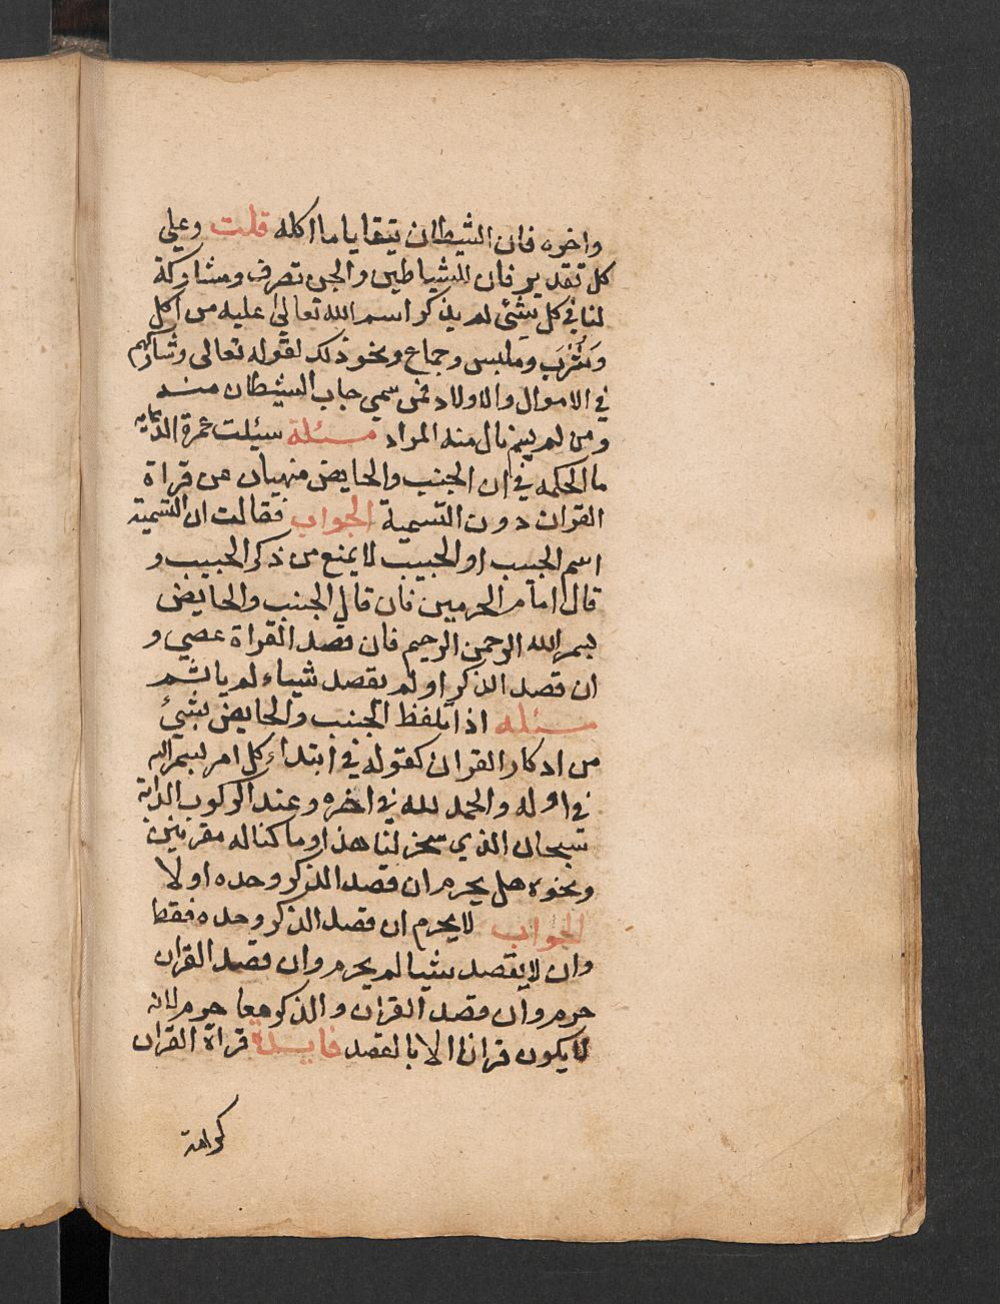 واخره فان الشيطان يتقايا ما اكله قلت وعلي
كل تقدير فان للشياطين والجن تصرف ومشاركة
لنا في كل شئ لم يذكر اسم الله تعالى عليه من اكل
وشرب وملبس وجماع ونحو ذلك لقوله تعالى وشاركهم
في الاموال والاولاد فمن سمي جاب الشيطان منه
ومن لم يسم نال منه المراد مسئلة سيئلت عمرة
ما الحكمه في ان الجنب والحايض منهيان عن قراة
القران دون التسمية الجواب فقالت ان التسمية
اسم الحبيب او الحبيب لا يمنع من ذكر الحبيب و
قال امام الحرمين فان قال الجنب والحايض
بسم الله الرحمن الرحيم فان قصد القراة عصي و
ان قصد الذكر او لم يقصد شياء لم ياثم
مسئله اذا تلفظ الجنب والحايض بشئ
من ادكار القران كقوله في ابتداء كل امر بسم الله
في اوله والحمد لله في اخره وعند الركوب الدابة
سبحان الذي سخر لنا هذا وما كنا له مقرنين
ونحوه هل يحرم ان قصد الذكر وحده او لا
الجواب لا يحرم ان قصد الذكر وحده فقط
وان لا يقصد شيا لم يحرم وان قصد القران
حرم وان قصد القران والذكر معا حرم لانه
لا يكون قرانا الا بالقصد فايدة قراة القران
كراهة